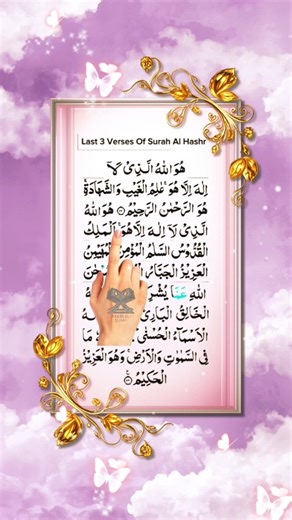 Last 3 Verses Of Surah Al Hashr
هُوَ اللّٰهُ الَّذِىْ لَاۤ
اِلٰهَ اِلَّا هُوَ ۚ عٰلِمُ الْغَيْبِ وَالشَّهَادَةِ ۚ
هُوَ الرَّحْمٰنُ الرَّحِيْمُ ۝ هُوَ اللّٰهُ
الَّذِىْ لَاۤ اِلٰهَ اِلَّا هُوَ ۚ اَلْمَلِكُ
الْقُدُّوْسُ السَّلٰمُ الْمُؤْمِنُ الْمُهَيْمِنُ
الْعَزِيْزُ الْجَبَّارُ
اللّٰهِ عَمَّا
الْخَالِقُ الْبَارِئُ
الْاَسْمَآءُ الْحُسْنٰى مَا
فِى السَّمٰوٰتِ وَالْاَرْضِ ۚ وَهُوَ الْعَزِيْزُ
الْحَكِيْمُ ۝